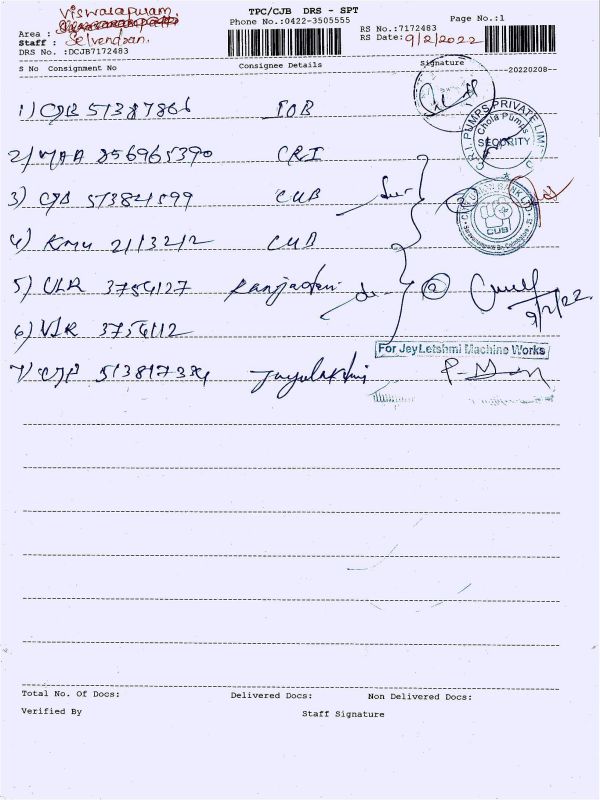 Viswasapuram.
TPC/CJB DRS - SPT
Phone No.:0422-3505555
Page No.:1
Area :
Staff : Selvendran.
DRS No. :DCJB7172483
RS No.:7172483
RS Date: 9/2/2022
S No Consignment No Consignee Details Signature --20220208--
1) CJB 513817866 IOB
2) MAA 856965390 CRI
3) CJB 513821599 CUB
4) KMU 2113212 CUB
5) VLR 3754127 Ranjadevi
6) VLR 3754112
7) CJB 513817384 Jayalakshmi
C.R.I. PUMPS PRIVATE LIMITED
Chola Pumps
SECURITY
CITY UNION BANK LTD
CUB
2
2
9/2/22
For Jey Letshmi Machine Works
Total No. Of Docs: Delivered Docs: Non Delivered Docs:
Verified By Staff Signature